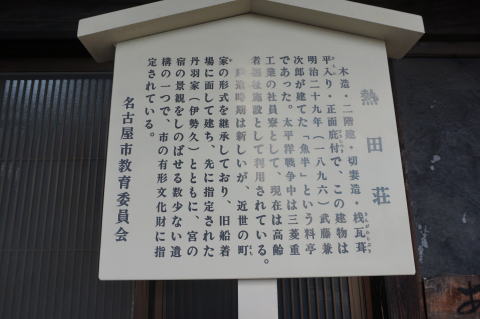 熱田荘
木造・二階建・切妻造・桟瓦葺
さんがわらぶき
平入り・正面庇付で、この建物は
明治二十九年(一八九六)武藤兼
次郎が建てた「魚半」という料亭
であった。太平洋戦争中は三菱重
工業の社員寮として、現在は高齢
者福祉施設として利用されている。
建造時期は新しいが、近世の町
家の形式を継承しており、旧船着
場に面して建ち、先に指定された
丹羽家(伊勢久)とともに、宮の
宿の景観をしのばせる数少ない遺
構の一つで、市の有形文化財に指
定されている。
名古屋市教育委員会